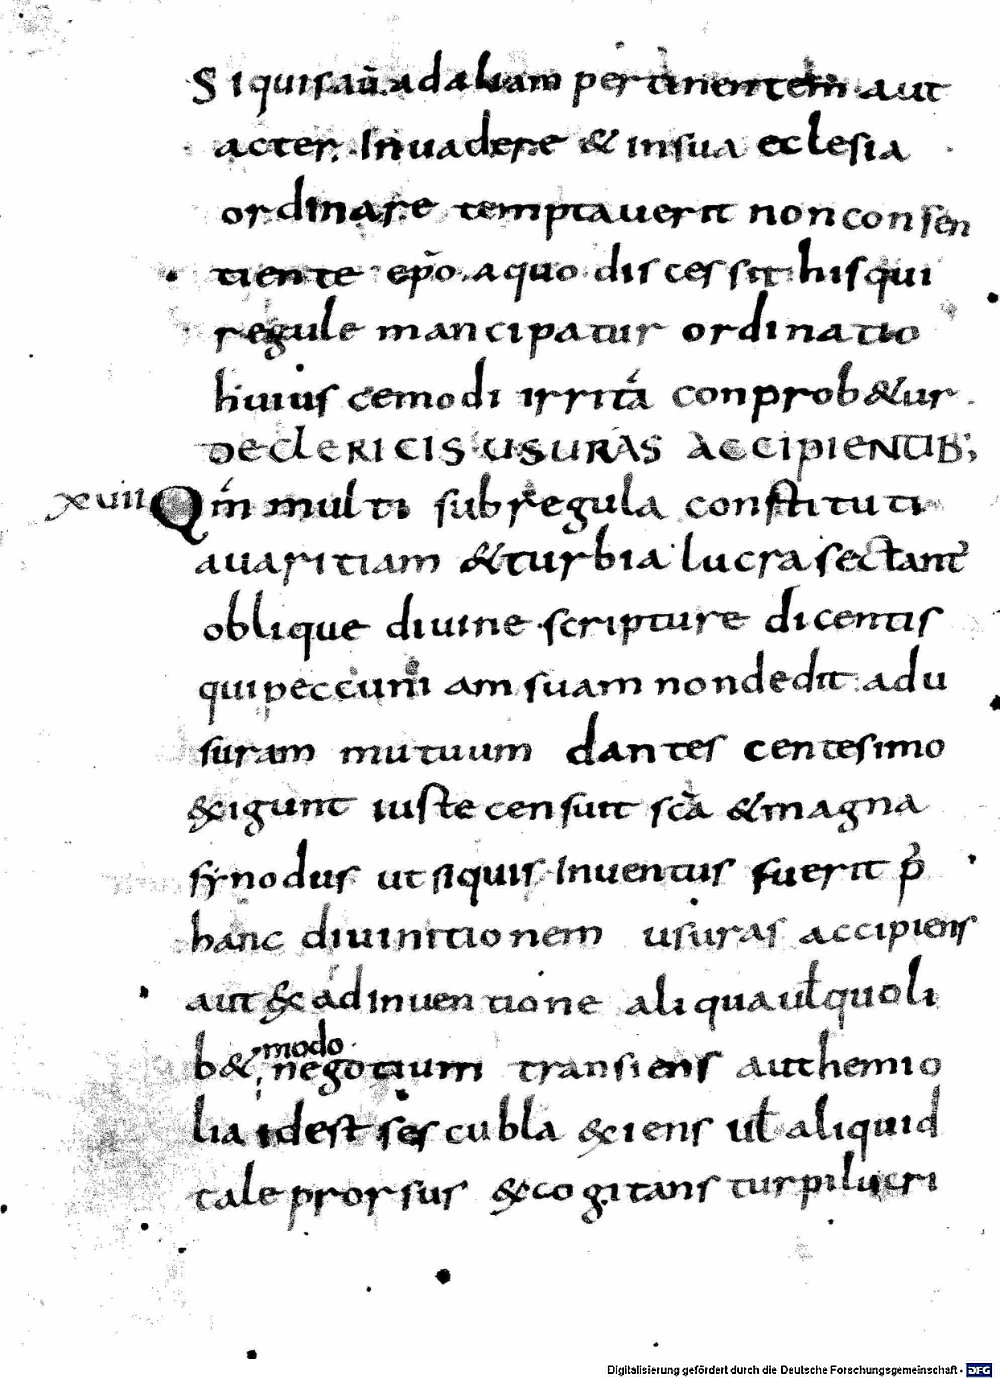 Si quis aū ad aliam pertinentem aut
acter. Inuadere & in sua eclesia
ordinare temptauerit non consen
tiente ep̄o. a quo discessit his qui
regule mancipatur ordinatio
huiuscemodi irrita conprob&ur.
DE CLERICIS USURAS ACCIPIENTIB;
xuii Qm̄ multi sub regula constituti
auaritiam & turbia lucra sectant̄
oblique diuine scripture dicentis
qui peccuniam suam non dedit adu
suram mutuum dantes centesimo
&xigunt iuste censuit sc̄a & magna
synodus ut si quis Inuentus fuerit p̄
hanc diuinitionem usuras accipiens
aut &x adinuentione aliqua ul̄ quoli
b& modo negotium transiens aut hemio
lia id est sescubla &xiens ul̄ aliquid
tale prorsus &xcogitans turpi lucri
Digitalisierung gefördert durch die Deutsche Forschungsgemeinschaft - DFG